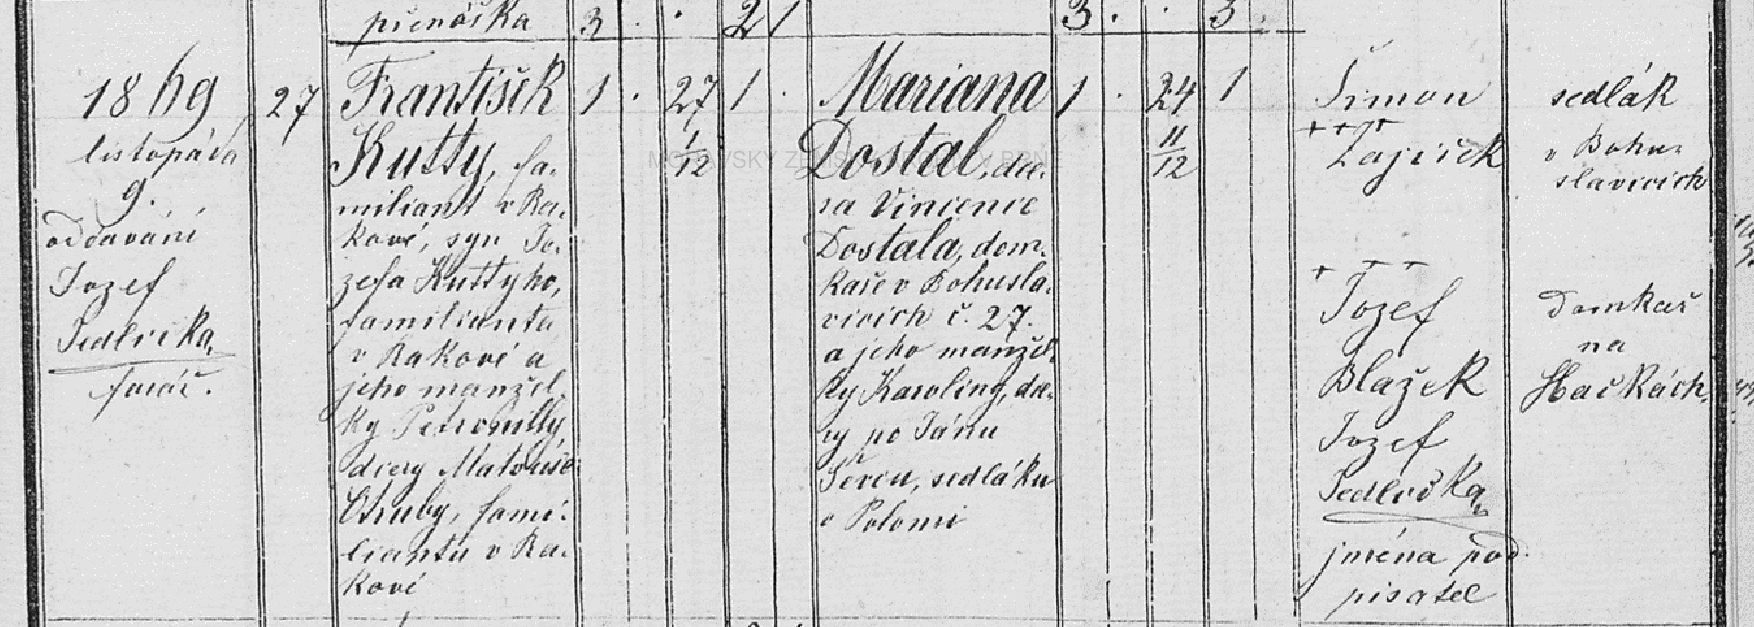 přenáška 3 . . 2 1 3 . . 3 .
1869
listopada
9.
oddávání
Jozef
Sedlička,
farář.
27
František
Kutty, fa-
miliant v Ra-
kové, syn Jo-
zefa Kuttyho,
familianta
v Rakové a
jeho manžel-
ky Petronilly,
dcery Matouše
Otruby, fami-
lianta v Ra-
kové
1 . 27 1 .
1/12
Mariana
Dostal, dce-
ra Vincence
Dostala, dom-
kaře v Bohusla-
vicích č. 27.
a jeho manžel-
ky Karoliny, dce-
ry po Jánu
sedláku
v Polomi
1 . 24 1
11/12
Šimon
+++
Zajíček
+++
Jozef
Blažek
Jozef
Sedlička,
jména pod-
pisatel
sedlák
v Bohu-
slavicích
Domkař
na
Hačkách
MORAVSKÝ ZEMSKÝ ARCHIV V BRNĚ